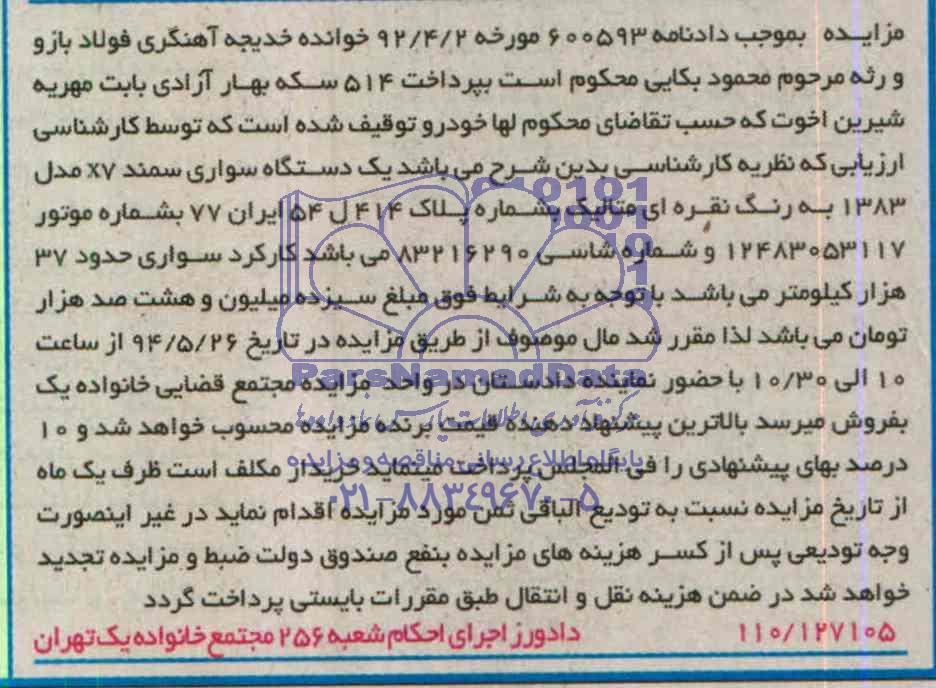 مزایده بموجب دادنامه ۶۰۰۵۹۳ مورخه ۹۲/۴/۲ خوانده خدیجه آهنگری فولاد بازو
و رثه مرحوم محمود بکایی محکوم است بپرداخت ۵۱۴ سکه بهار آزادی بابت مهریه
شیرین اخوت که حسب تقاضای محکوم لها خودرو توقیف شده است که توسط کارشناسی
ارزیابی که نظریه کارشناسی بدین شرح می باشد یک دستگاه سواری سمند x۷ مدل
۱۳۸۳ به رنگ نقره ای متالیک بشماره پلاک ۴۱۴ ل ۵۴ ایران ۷۷ بشماره موتور
۱۲۴۸۳۰۵۳۱۱۷ و شماره شاسی ۸۳۲۱۶۲۹۰ می باشد کارکرد سواری حدود ۳۷
هزار کیلومتر می باشد با توجه به شرایط فوق مبلغ سیزده میلیون و هشت صد هزار
تومان می باشد لذا مقرر شد مال موصوف از طریق مزایده در تاریخ ۹۴/۵/۲۶ از ساعت
۱۰ الی ۱۰/۳۰ با حضور نماینده دادستان در واحد مزایده مجتمع قضایی خانواده یک
ParsNamadData
بفروش میرسد بالاترین پیشنهاد دهنده قیمت برنده مزایده محسوب خواهد شد و ۱۰
درصد بهای پیشنهادی را فی المجلس پرداخت مینماید خریدار مکلف است ظرف یک ماه
پایگاه اطلاع رسانی مناقصه و مزایده
از تاریخ مزایده نسبت به تودیع الباقی ثمن مورد مزایده اقدام نماید در غیر اینصورت
۰۲۱-۸۸۳۴۹۶۷۰-۵
وجه تودیعی پس از کسر هزینه های مزایده بنفع صندوق دولت ضبط و مزایده تجدید
خواهد شد در ضمن هزینه نقل و انتقال طبق مقررات بایستی پرداخت گردد
۱۱۰/۱۲۷۱۰۵ دادورز اجرای احکام شعبه ۲۵۶ مجتمع خانواده یک تهران